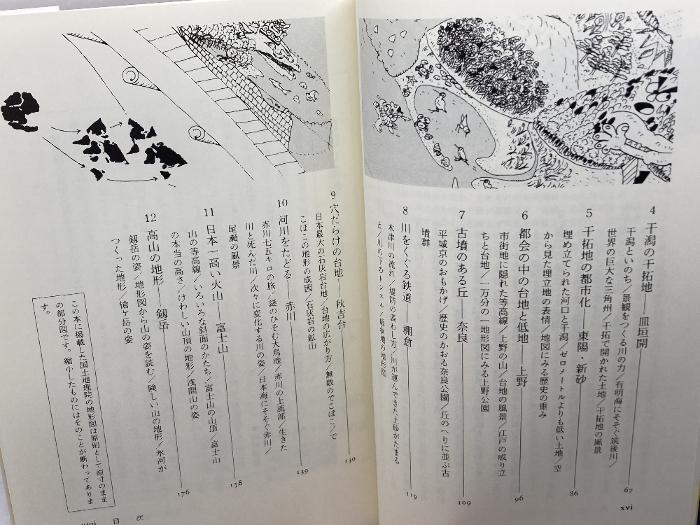 4 干潟の干拓地――皿垣開 67
干潟といのち／景観をつくる川の力／有明海にそそぐ筑後川／
世界の巨大な三角州／干拓で開かれた土地／干拓地の風景
5 干拓地の都市化――東陽・新砂 86
埋め立てられた河口と干潟／ゼロメートルよりも低い土地／空
から見た埋立地の表情／地図にみる歴史の重み
6 都会の中の台地と低地――上野 96
市街地に隠れた等高線／上野の山／台地の風景／江戸の成り立
ちと台地／一万分の一地形図にみる上野公園
7 古墳のある丘――奈良 109
平城京のおもかげ／歴史のかおる奈良公園／丘のへりに並ぶ古
墳群
8 川をくぐる鉄道――棚倉 119
木津川の流れ／堤防の裏わし方／川が運んできた土砂がたまる
xvi
9 穴だらけの台地――秋吉台 130
日本最大の石灰岩台地／台地の広がり方／無数のでこぼこ／で
こぼこの地形の成因／石灰岩の鉱山
10 河川をたどる――赤川 139
赤川七五キロの旅／謎のひそむ大鳥池／赤川の上流部／生きた
川と死んだ川／次々に変化する川の姿／日本海にそそぐ赤川／
尾瀬の風景
11 日本一高い火山――富士山 158
山の等高線／いろいろな斜面のかたち／富士山の山頂／富士山
の本当の高さ／けわしい山頂の地形／浅間山の姿
12 高山の地形――剱岳 176
剱岳の姿／地形図から山の姿を読む／険しい山の地形／氷河が
つくった地形／槍ヶ岳の姿
この本に掲載した国土地理院の地形図は原則として原寸のまま
の部分図です。縮小したものにはそのことが断わってありま
す。
目 次
xvii